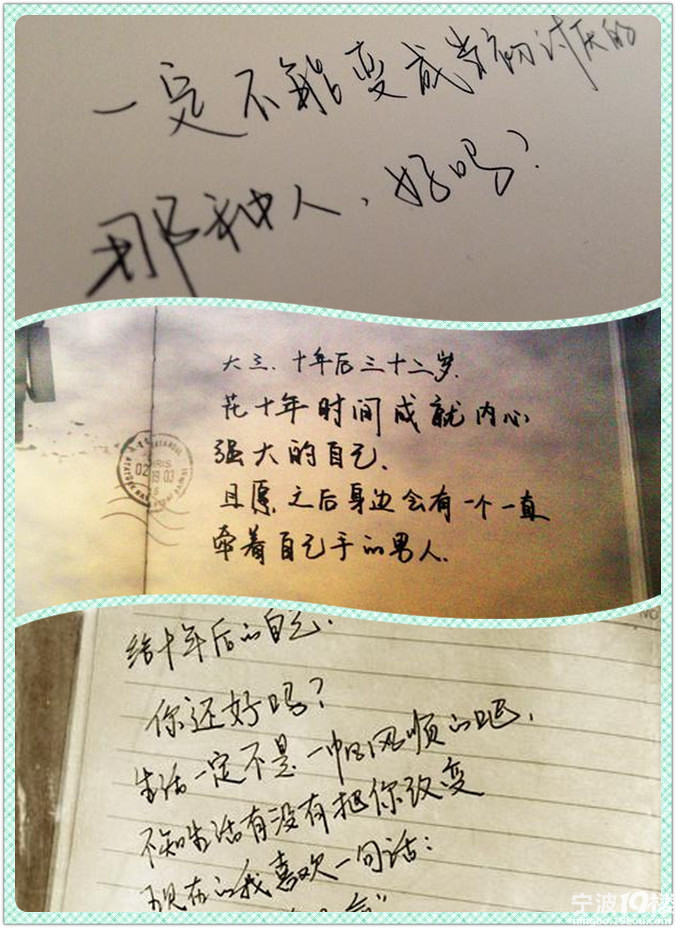 一定不能变成当初讨厌的
那种人，好吗？
大三、十年后三十二岁.
花十年时间成就内心
强大的自己、
且愿之后身边会有一个一直
牵着自己手的男人.
02
03
给十年后的自己.
你还好吗？
生活一定不是一帆风顺的吧，
不知生活有没有把你改变
现在的我喜欢一句话：
宁波19楼